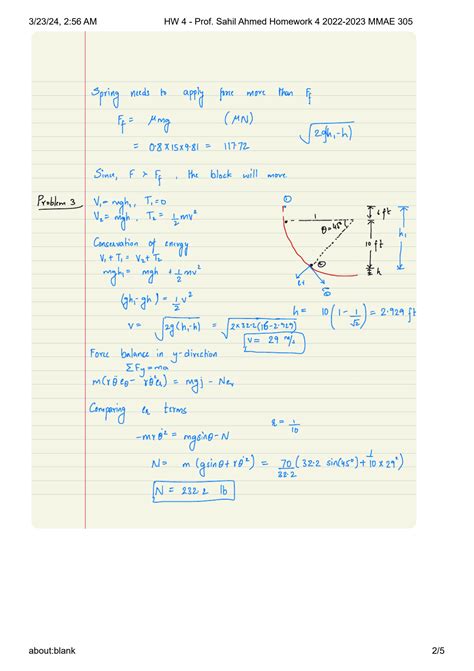 3/23/24, 2:56 AM HW 4 - Prof. Sahil Ahmed Homework 4 2022-2023 MMAE 305
Spring needs to apply force more than Ff
Ff = μmg (μN)
√2g(h₁-h)
= 0.8×15×9.81 = 117.72
Since, F > Ff, the block will move
Problem 3 V₁ = mgh₁, T₁=0
V₂ = mgh, T₂ = 1/2 mv²
Conservation of energy
V₁ + T₁ = V₂ + T₂
mgh₁ = mgh + 1/2 mv²
(gh₁-gh) = 1/2 v²
v = √2g(h₁-h) = √2×32.2(16-2.929)
V = 29
① 1 θ=45° 6 ft
10 ft h₁
② h
h = 10(1 - 1/√2) = 2.929 ft
Force balance in y-direction
ΣFy = ma
Comparing er terms
-mrθ̇² = mgsinθ - N
1/10
N = m(gsinθ + rθ̇²) = 70/32.2 (32.2 sin(45°) + 1/10 × 29²)
N = 232.2 lb
about:blank 2/5